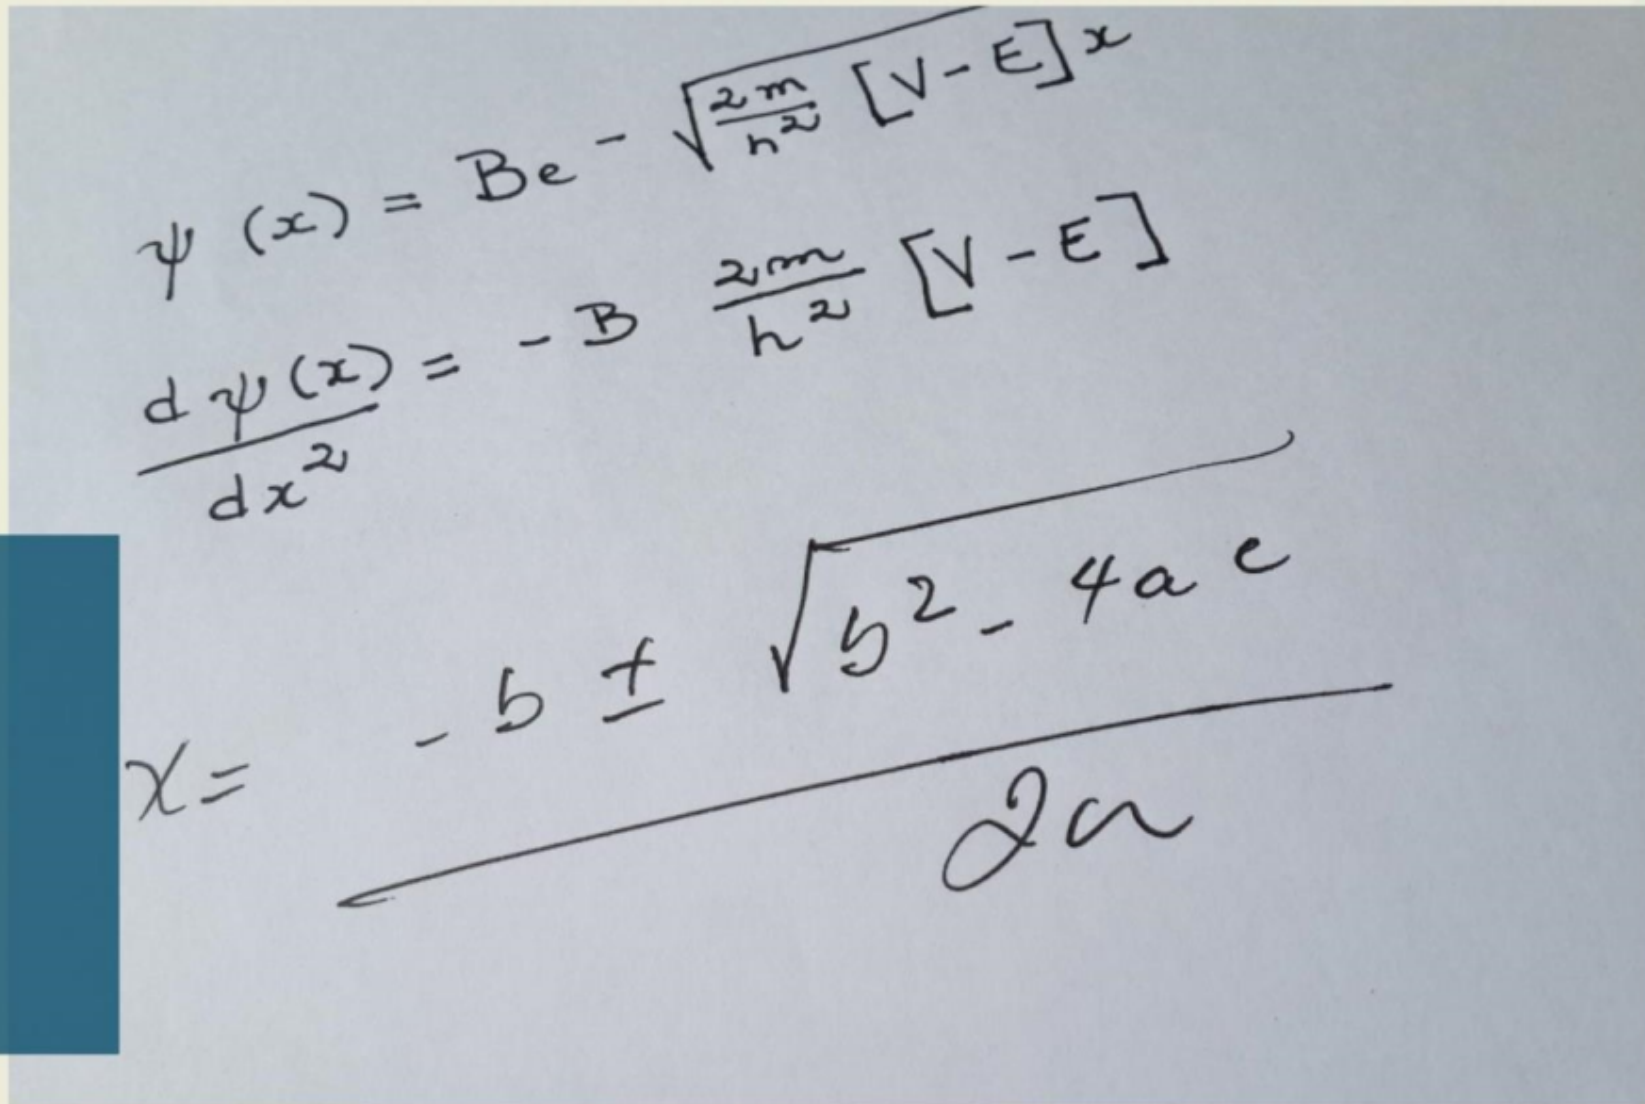 ψ (x) = Be^-√(2m/h² [V-E]x)
dψ(x)/dx² = -B 2m/h² [V-E]
x = (-b ± √(b² - 4ac))/2a